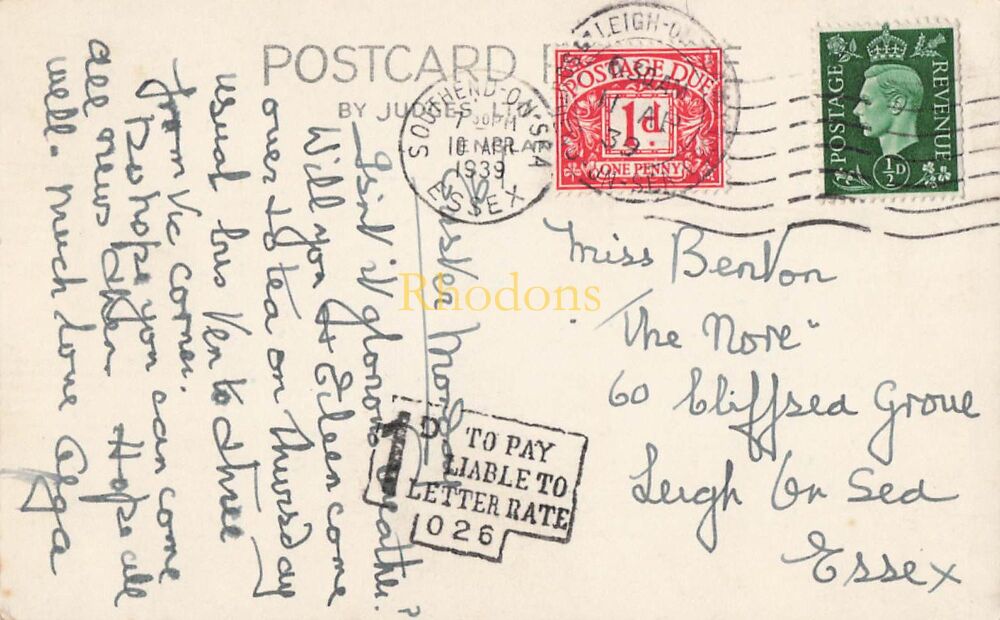 POSTCARD
BY JUDGES, LTD
SOUTHEND-ON-SEA
7 30PM
10 APR
1939
ESSEX
LEIGH-ON-SEA
11 AP
39
POSTAGE DUE
1d.
ONE PENNY
POSTAGE
REVENUE
½D
Easter Monday
Isin't it glorous weather?
Will you & Eileen come
over to tea on Thursday
usual bus Ven to three
from Vic corner.
Do hope you can come
all news then Hope all
well. Much love Olga
Miss Benton
"The Nore"
60 Cliffsea Grove
Leigh On Sea
Essex
1D TO PAY
LIABLE TO
LETTER RATE
026
Rhodons